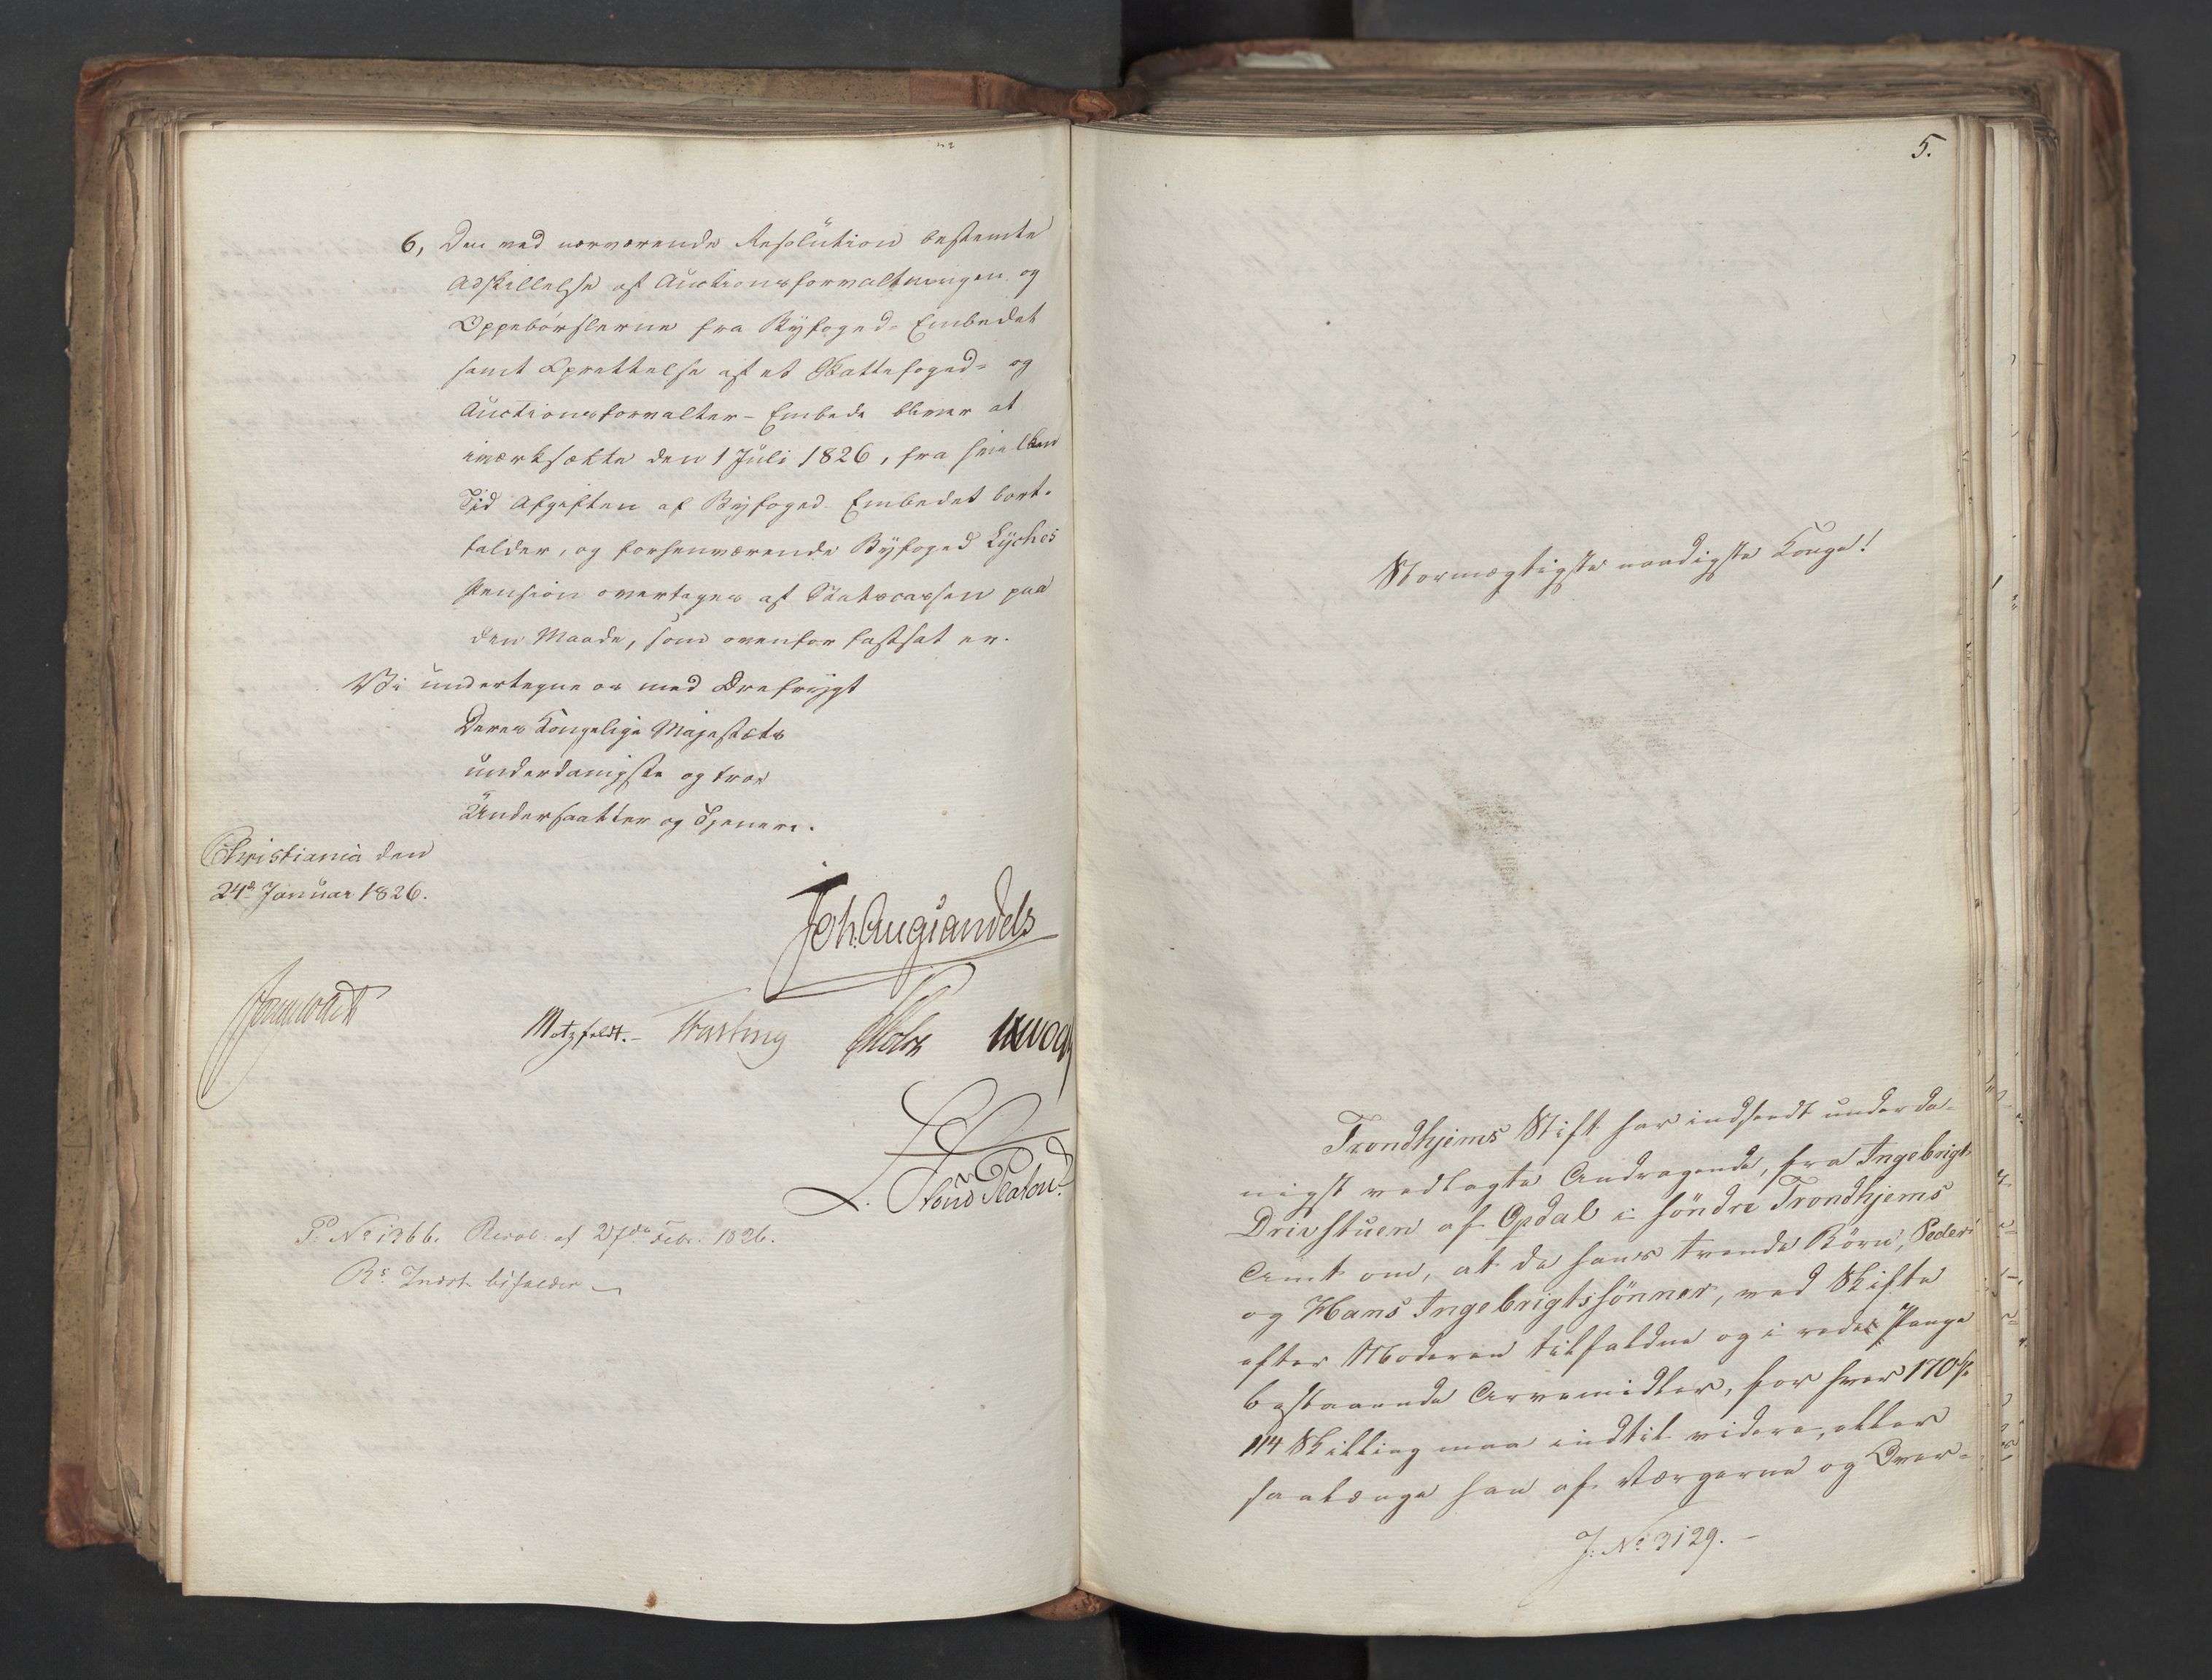 6, Den ved nærværende Resolution bestemte
Adskillelse af Auctionsforvaltningen og
Oppebørslerne fra Byfoged-Embedet
samt Oprettelse af et Skattefoged- og
Auctionsforvalter-Embede bliver at
iværksætte den 1 Juli 1826, fra hvilken
Tid Afgiften af Byfoged-Embedet bort-
falder, og forhenværende Byfoged Lyches
Pension overtages af Statscassen paa
den Maade, som ovenfor fastsat er.
Vi undertegne os med Ærefrygt
Deres Kongelige Majestæts
underdanigste og troe
Undersaatter og Tjenere.
Christiania den
24d Januar 1826.
Joh. Aug. Sandels
Motzfeldt.
P. No 1366. Resol. af 27de Febr. 1826.
Rs Indst. bifaldes
5.
Stormægtigste naadigste Konge!
Trondhjems Stift har indsendt underda-
nigst vedlagte Andragende, fra Ingebrigt
Drivstuen af Opdal i søndre Trondhjems
Amt om, at de hans tvende Børn, Peder
og Hans Ingebrigtssønner, ved Skifte
efter Moderen tilfaldne og i rede Penge
bestaaende Arvemidler, for hver 170
114 Skilling maa indtil videre, eller
saalænge han af Værgerne og Over-
J: No 3129.